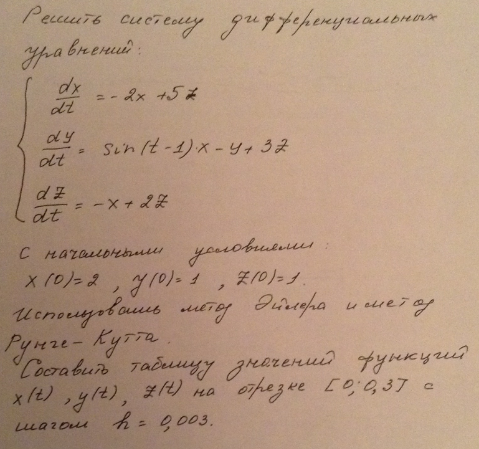 Решить систему дифференциальных
уравнений:
dx/dt = -2x + 5z
dy/dt = sin(t-1)·x - y + 3z
dz/dt = -x + 2z
с начальными условиями:
x(0)=2, y(0)=1, z(0)=1.
Использовать метод Эйлера и метод
Рунге-Кутта.
Составить таблицу значений функций
x(t), y(t), z(t) на отрезке [0; 0,3] с
шагом h = 0,003.